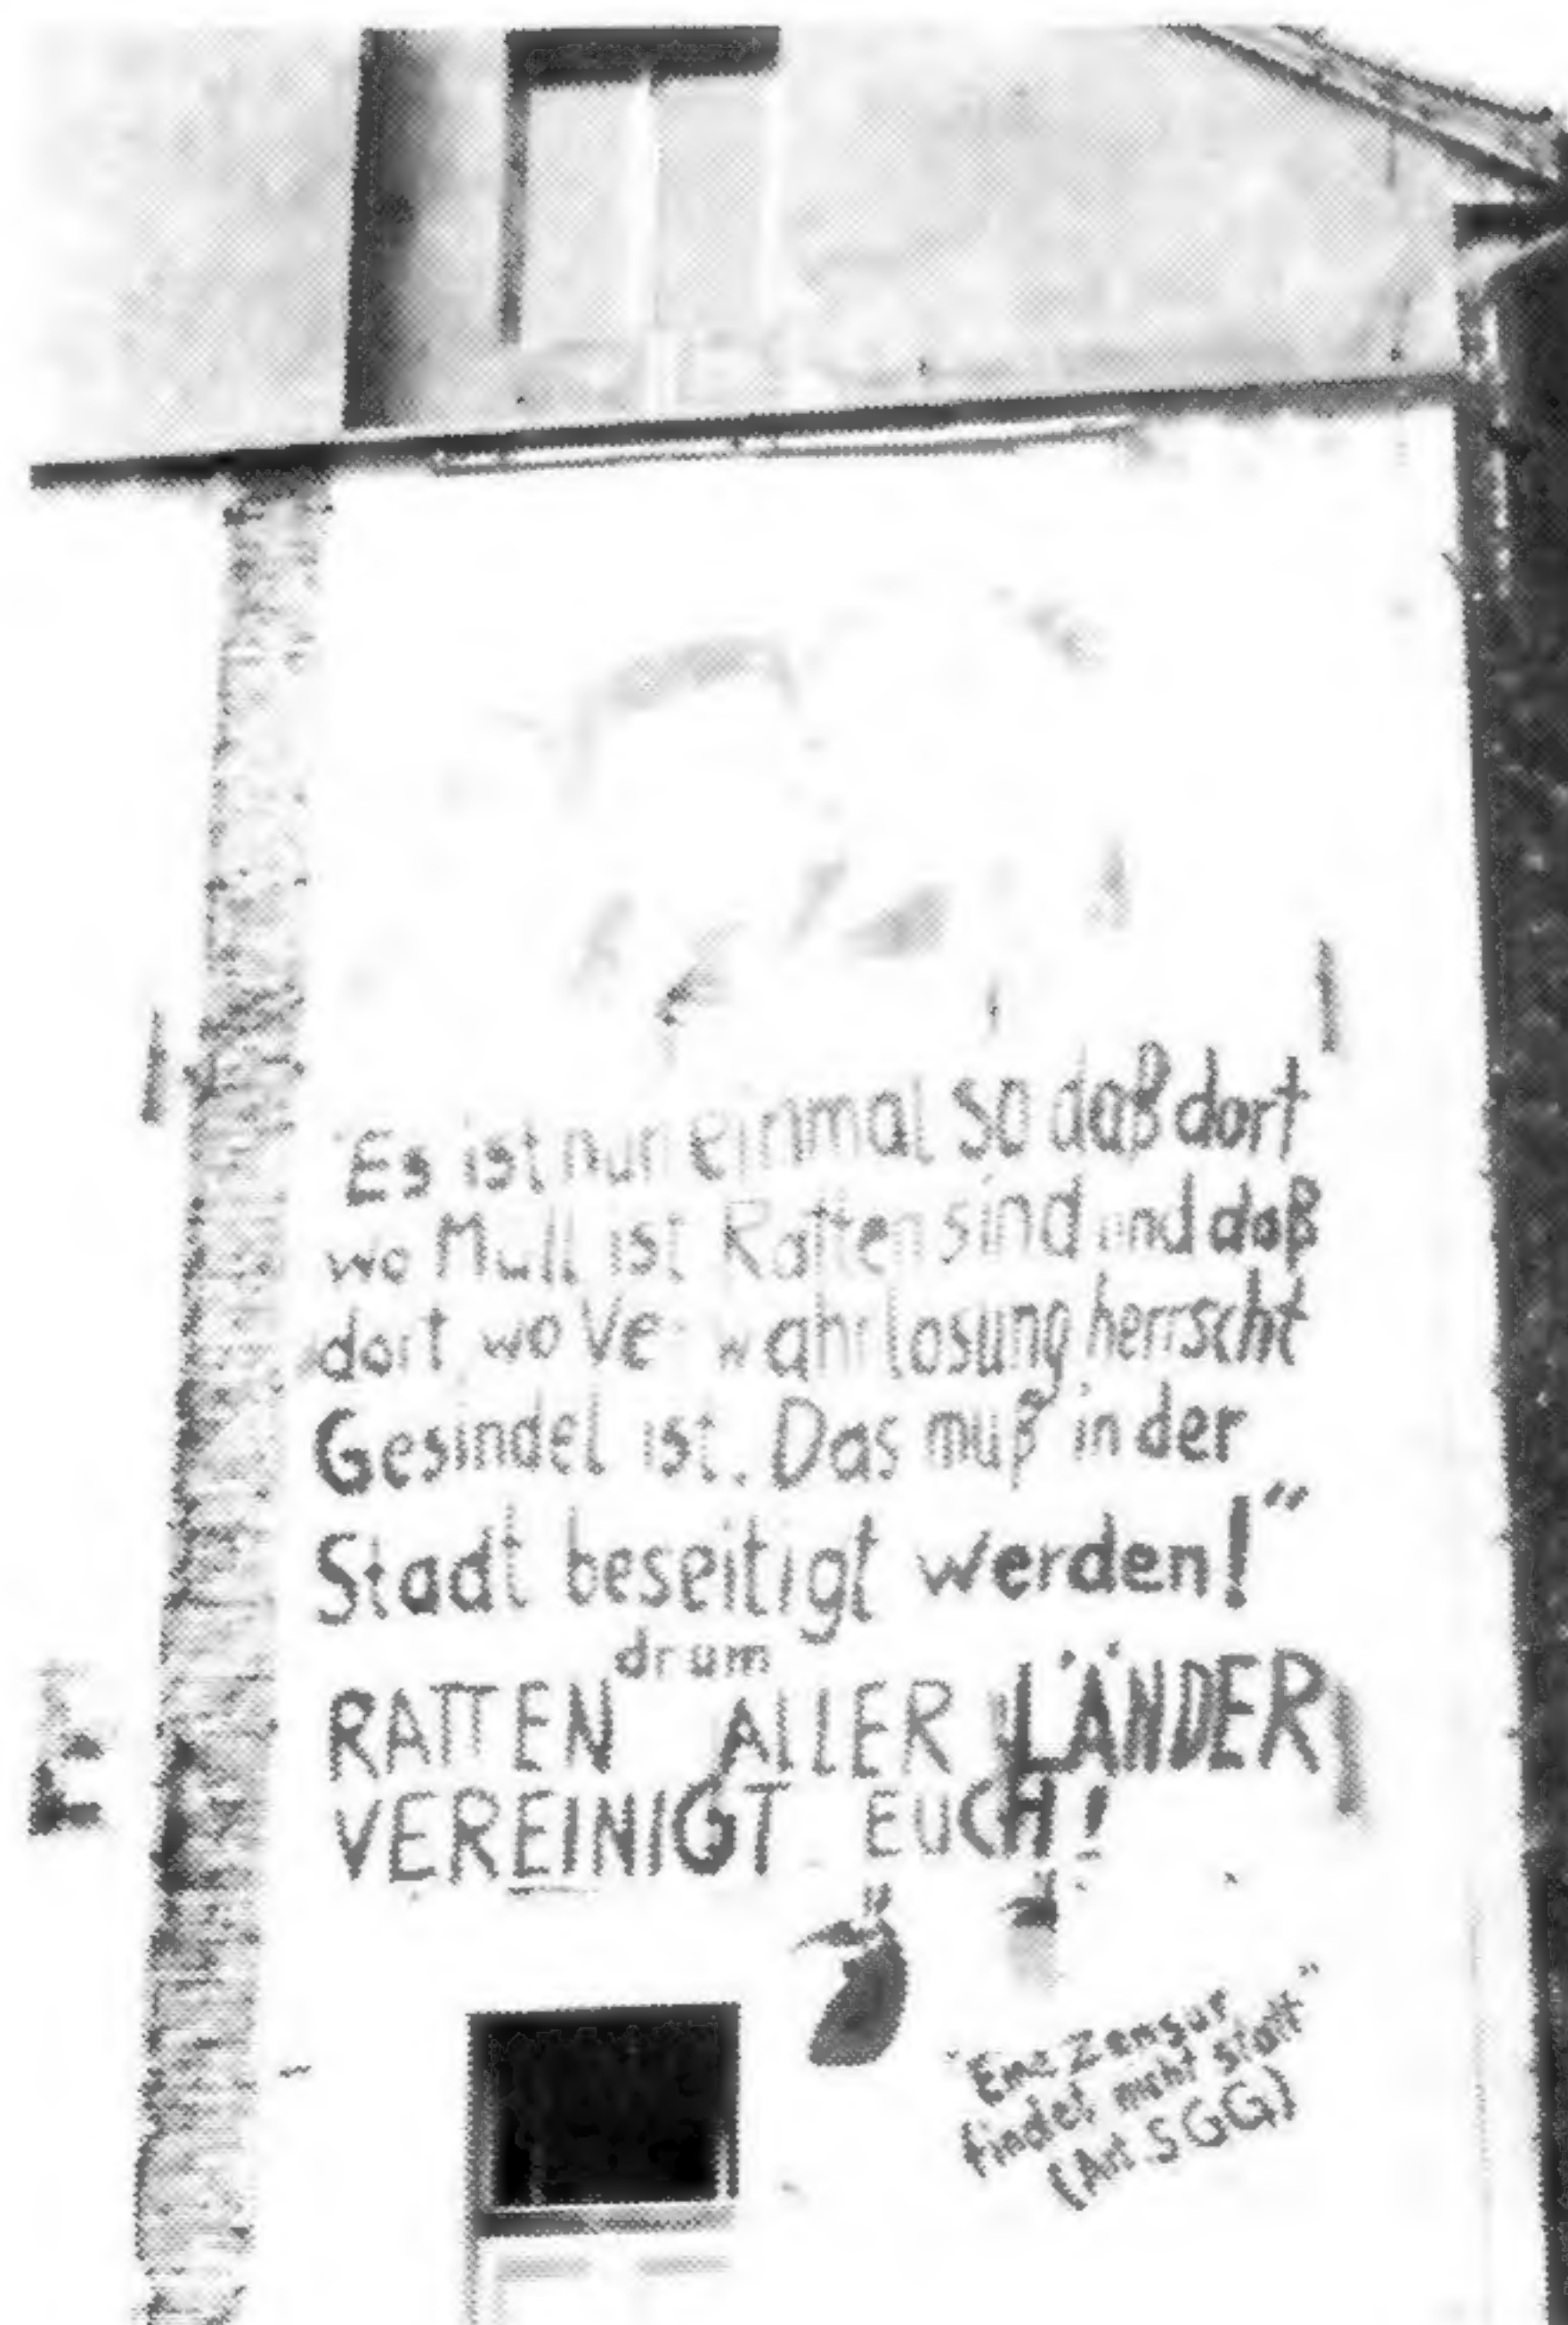 "Es ist nun einmal so daß dort
wo Müll ist Ratten sind und daß
dort wo Verwahrlosung herrscht
Gesindel ist. Das muß in der
Stadt beseitigt werden!"
drum
RATTEN ALLER LÄNDER
VEREINIGT EUCH!
"Eine Zensur
findet nicht statt"
(Art. 5 GG)